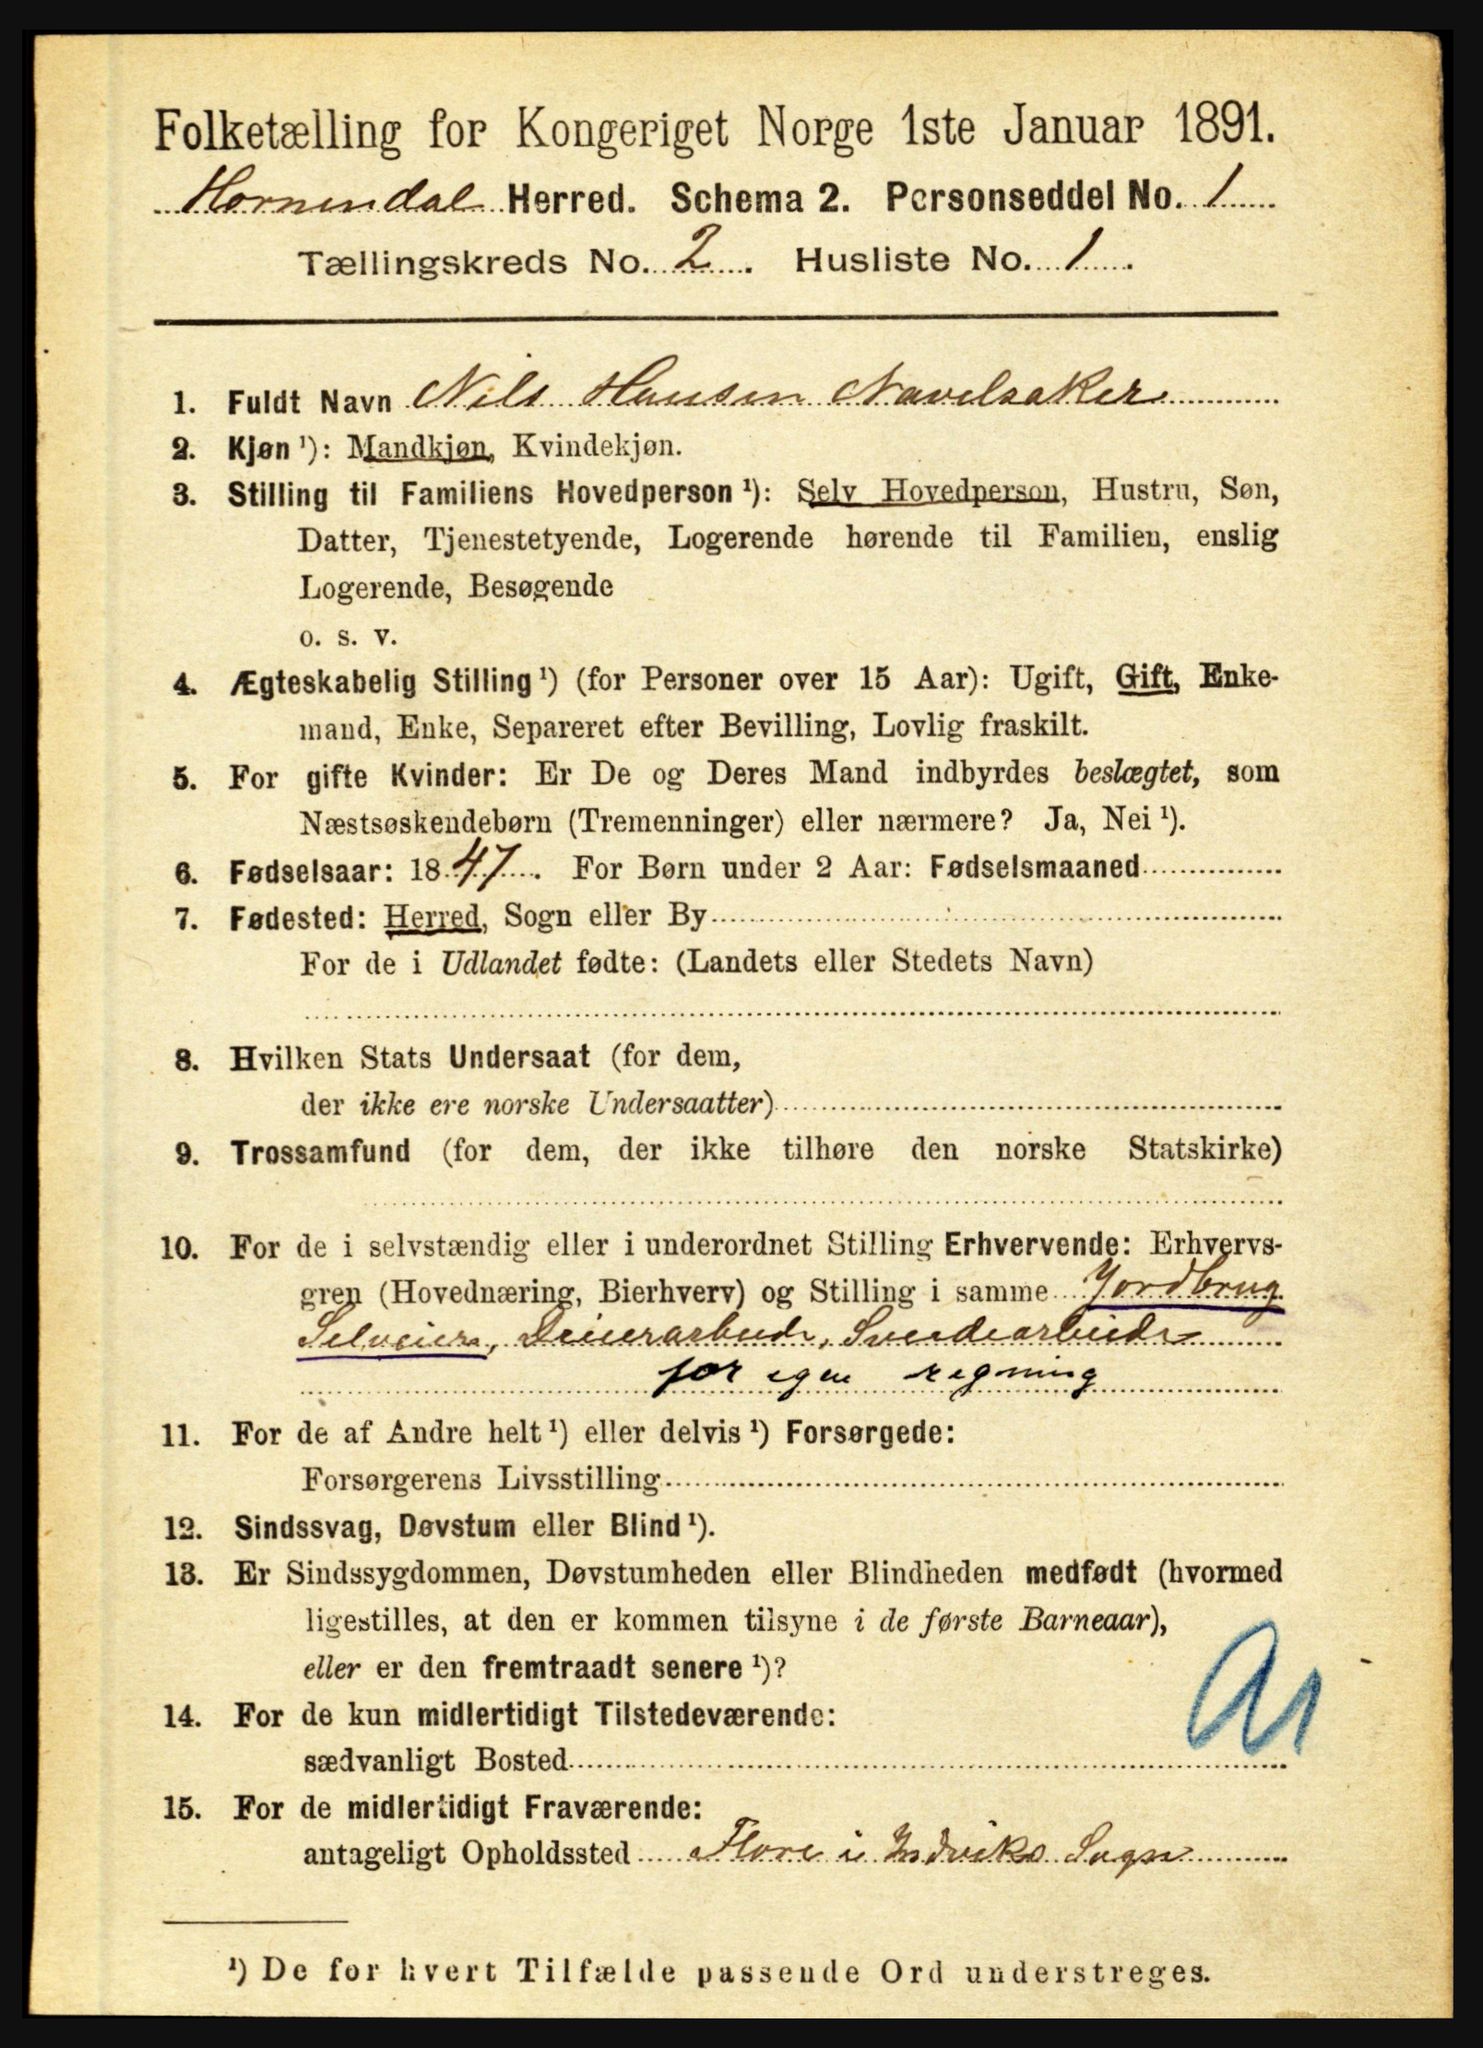 Folketælling for Kongeriget Norge 1ste Januar 1891.
Hornindal Herred. Schema 2. Personseddel No. 1
Tællingskreds No. 2. Husliste No. 1.
1. Fuldt Navn Nils Hansen Navelsaker
2. Kjøn ¹): Mandkjøn, Kvindekjøn.
3. Stilling til Familiens Hovedperson ¹): Selv Hovedperson, Hustru, Søn,
Datter, Tjenestetyende, Logerende hørende til Familien, enslig
Logerende, Besøgende
o. s. v.
4. Ægteskabelig Stilling ¹) (for Personer over 15 Aar): Ugift, Gift, Enke-
mand, Enke, Separeret efter Bevilling, Lovlig fraskilt.
5. For gifte Kvinder: Er De og Deres Mand indbyrdes beslægtet, som
Næstsøskendebørn (Tremenninger) eller nærmere? Ja, Nei ¹).
6. Fødselsaar: 1847. For Børn under 2 Aar: Fødselsmaaned
7. Fødested: Herred, Sogn eller By
For de i Udlandet fødte: (Landets eller Stedets Navn)
8. Hvilken Stats Undersaat (for dem,
der ikke ere norske Undersaatter)
9. Trossamfund (for dem, der ikke tilhøre den norske Statskirke)
10. For de i selvstændig eller i underordnet Stilling Erhvervende: Erhvervs-
gren (Hovednæring, Bierhverv) og Stilling i samme Jordbrug
Selveier,
for egen regning
11. For de af Andre helt ¹) eller delvis ¹) Forsørgede:
Forsørgerens Livsstilling
12. Sindssvag, Døvstum eller Blind ¹).
13. Er Sindssygdommen, Døvstumheden eller Blindheden medfødt (hvormed
ligestilles, at den er kommen tilsyne i de første Barneaar),
eller er den fremtraadt senere ¹)?
14. For de kun midlertidigt Tilstedeværende:
sædvanligt Bosted
15. For de midlertidigt Fraværende:
antageligt Opholdssted Flore i Indviks Sogn
¹) De for hvert Tilfælde passende Ord understreges.